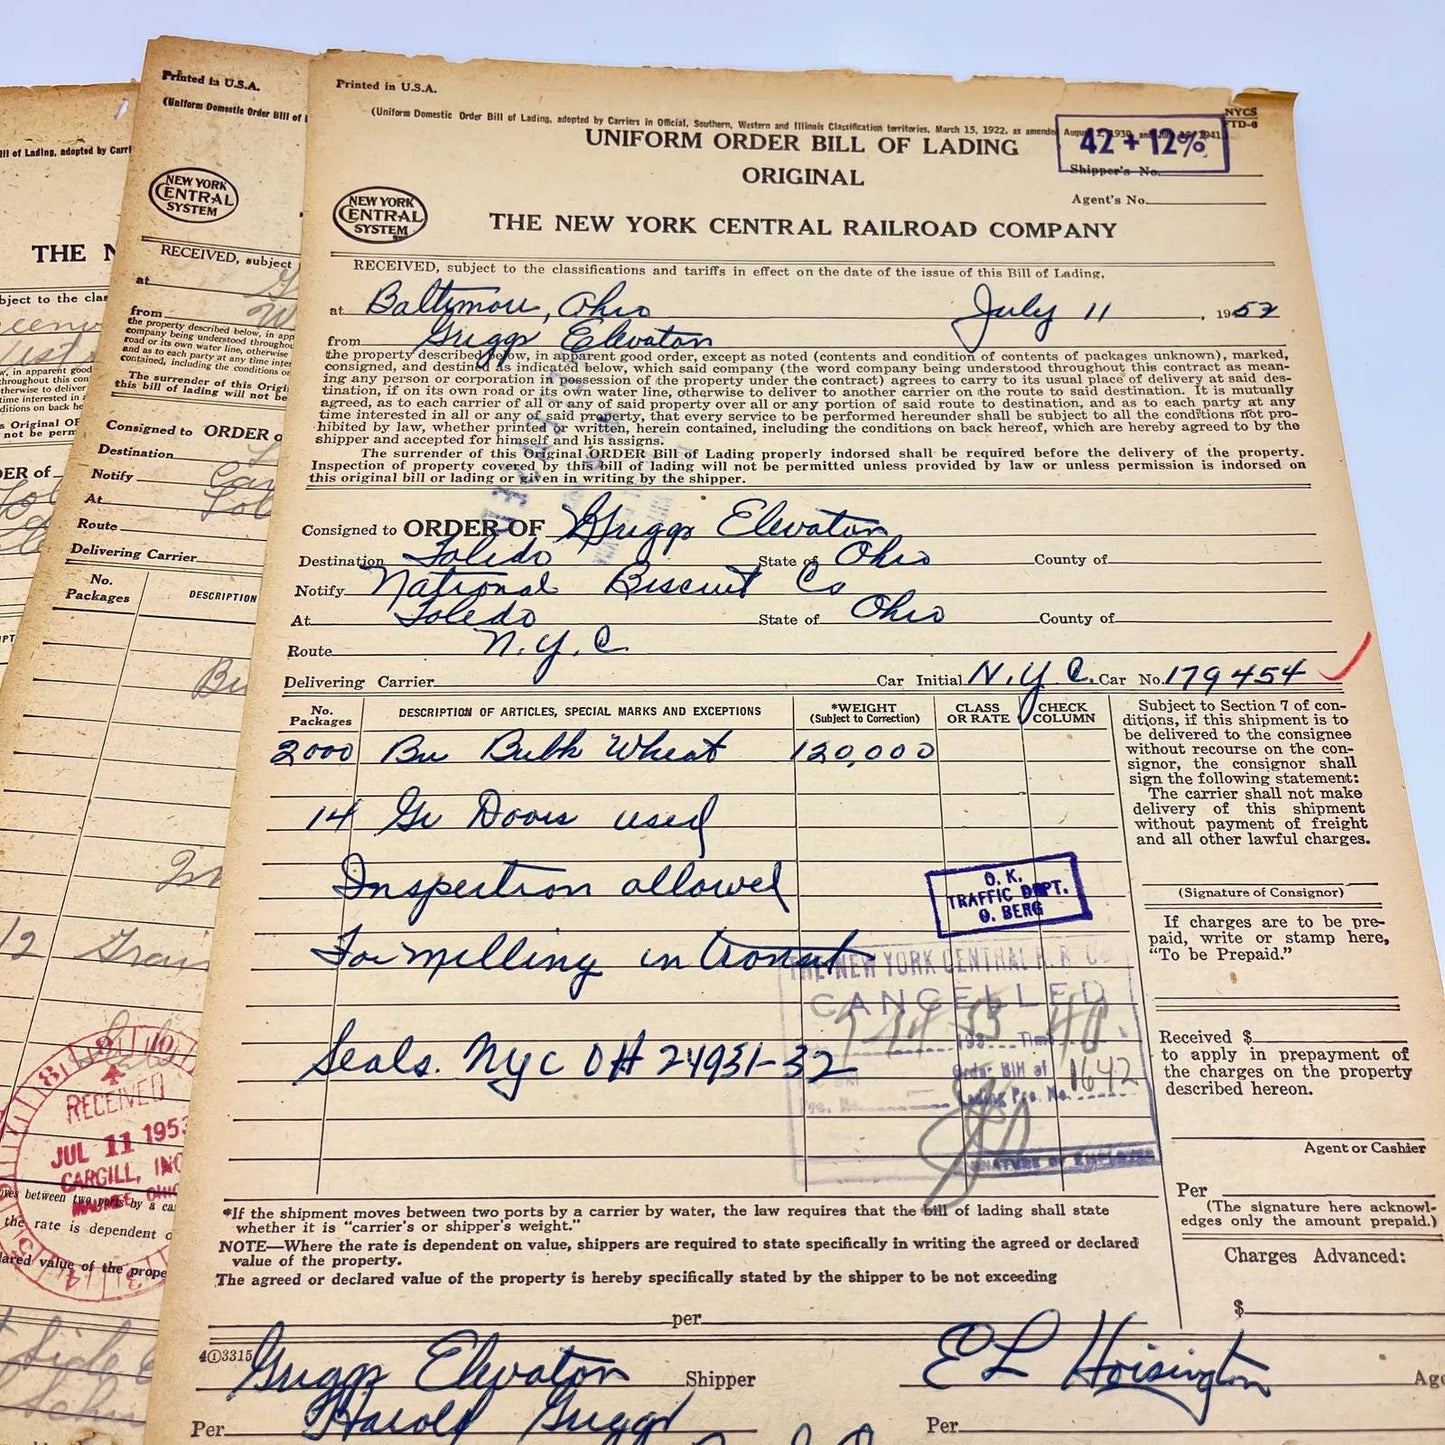 Printed in U.S.A.
(Uniform Domestic Order Bill of Lading, adopted by Carriers in Official, Southern, Western and Illinois Classification territories, March 15, 1922, as amended August 1, 1930, and 1941.)
NYCS
FTD-6
UNIFORM ORDER BILL OF LADING
42 + 12%
Shipper's No.
ORIGINAL
Agent's No.
NEW YORK CENTRAL SYSTEM
THE NEW YORK CENTRAL RAILROAD COMPANY
RECEIVED, subject to the classifications and tariffs in effect on the date of the issue of this Bill of Lading,
at Baltimore, Ohio July 11, 1952
from Griggs Elevator
the property described below, in apparent good order, except as noted (contents and condition of contents of packages unknown), marked,
consigned, and destined as indicated below, which said company (the word company being understood throughout this contract as mean-
ing any person or corporation in possession of the property under the contract) agrees to carry to its usual place of delivery at said des-
tination, if on its own road or its own water line, otherwise to deliver to another carrier on the route to said destination. It is mutually
agreed, as to each carrier of all or any of said property over all or any portion of said route to destination, and as to each party at any
time interested in all or any of said property, that every service to be performed hereunder shall be subject to all the conditions not pro-
hibited by law, whether printed or written, herein contained, including the conditions on back hereof, which are hereby agreed to by the
shipper and accepted for himself and his assigns.
The surrender of this Original ORDER Bill of Lading properly indorsed shall be required before the delivery of the property.
Inspection of property covered by this bill of lading will not be permitted unless provided by law or unless permission is indorsed on
this original bill or lading or given in writing by the shipper.
Consigned to ORDER OF Griggs Elevator
Destination Toledo State of Ohio County of
Notify National Biscuit Co
At Toledo State of Ohio County of
Route N.Y.C
Delivering Carrier Car Initial N.Y.C. Car No. 179454
No. Packages DESCRIPTION OF ARTICLES, SPECIAL MARKS AND EXCEPTIONS *WEIGHT (Subject to Correction) CLASS OR RATE CHECK COLUMN
2000 Bu Bulk Wheat 120,000
14 Gr Doors used
Inspection allowed
For milling in transit
Seals. NYC OH 24931-32
O. K.
TRAFFIC DEPT.
O. BERG
THE NEW YORK CENTRAL R. R. CO.
CANCELLED
Order Bill of
Lading Pro. No. 1642
SIGNATURE OF EMPLOYEE
Subject to Section 7 of con-
ditions, if this shipment is to
be delivered to the consignee
without recourse on the con-
signor, the consignor shall
sign the following statement:
The carrier shall not make
delivery of this shipment
without payment of freight
and all other lawful charges.
(Signature of Consignor)
If charges are to be pre-
paid, write or stamp here,
"To be Prepaid."
Received $
to apply in prepayment of
the charges on the property
described hereon.
Agent or Cashier
Per
(The signature here acknowl-
edges only the amount prepaid.)
Charges Advanced:
$
*If the shipment moves between two ports by a carrier by water, the law requires that the bill of lading shall state
whether it is "carrier's or shipper's weight."
NOTE—Where the rate is dependent on value, shippers are required to state specifically in writing the agreed or declared
value of the property.
The agreed or declared value of the property is hereby specifically stated by the shipper to be not exceeding
per
4①3315
Griggs Elevator Shipper
E L Hoisington
Per Harold Griggs
Per
Printed in U.S.A.
(Uniform Domestic Order Bill of
NEW YORK CENTRAL SYSTEM
RECEIVED, subject
at
from
the property described below, in app
company being understood througho
The surrender of this Origi
this bill of lading will not be
Consigned to ORDER O
Destination
Notify
At
Route
Delivering Carrier
No. Packages DESCRIPTION
Bu
THE N
RECEIVED
JUL 11 1953
CARGILL, INC